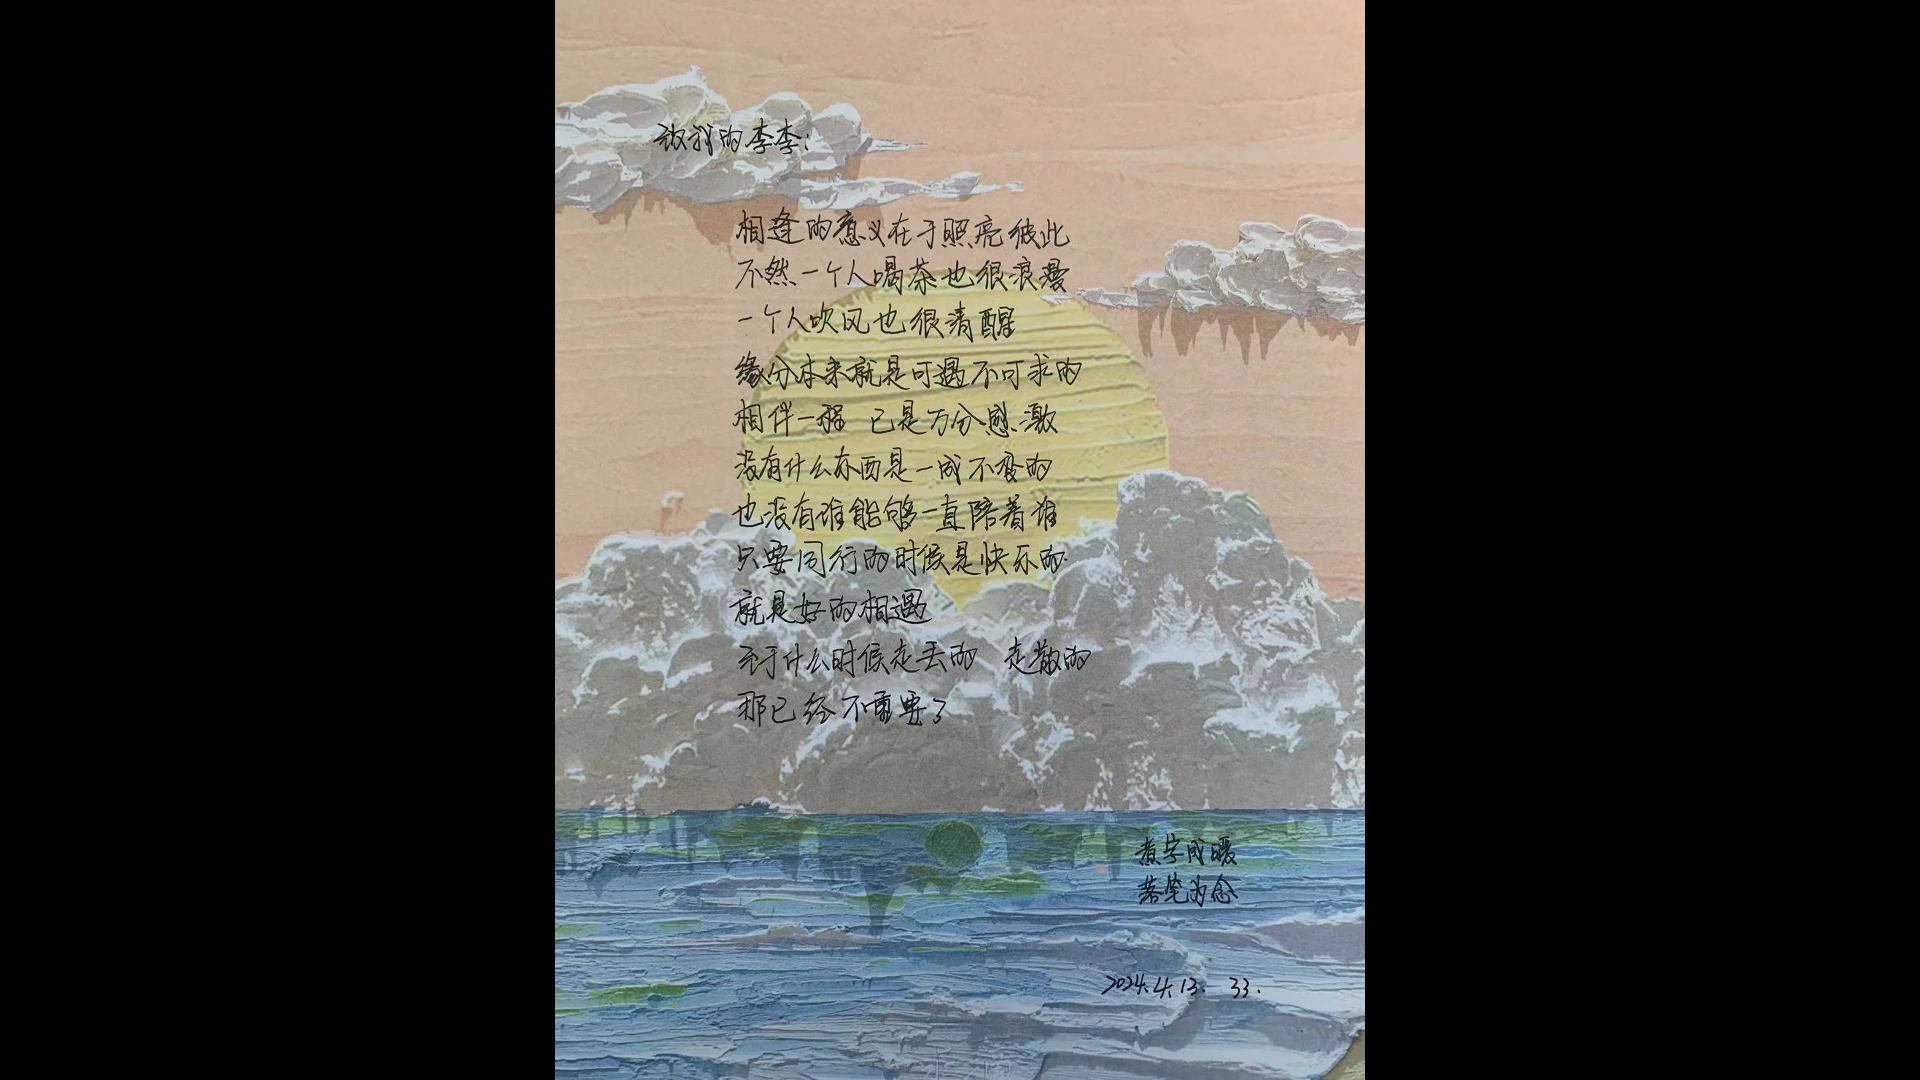 致我的李李：
相逢的意义在于照亮彼此
不然一个人喝茶也很浪漫
一个人吹风也很清醒
缘分本来就是可遇不可求的
相伴一程 已是万分感激
没有什么东西是一成不变的
也没有谁能够一直陪着谁
只要同行的时候是快乐的
就是好的相遇
至于什么时候走丢的 走散的
那已经不重要了
煮字成暖
落笔为念
2024.4.13. 33.